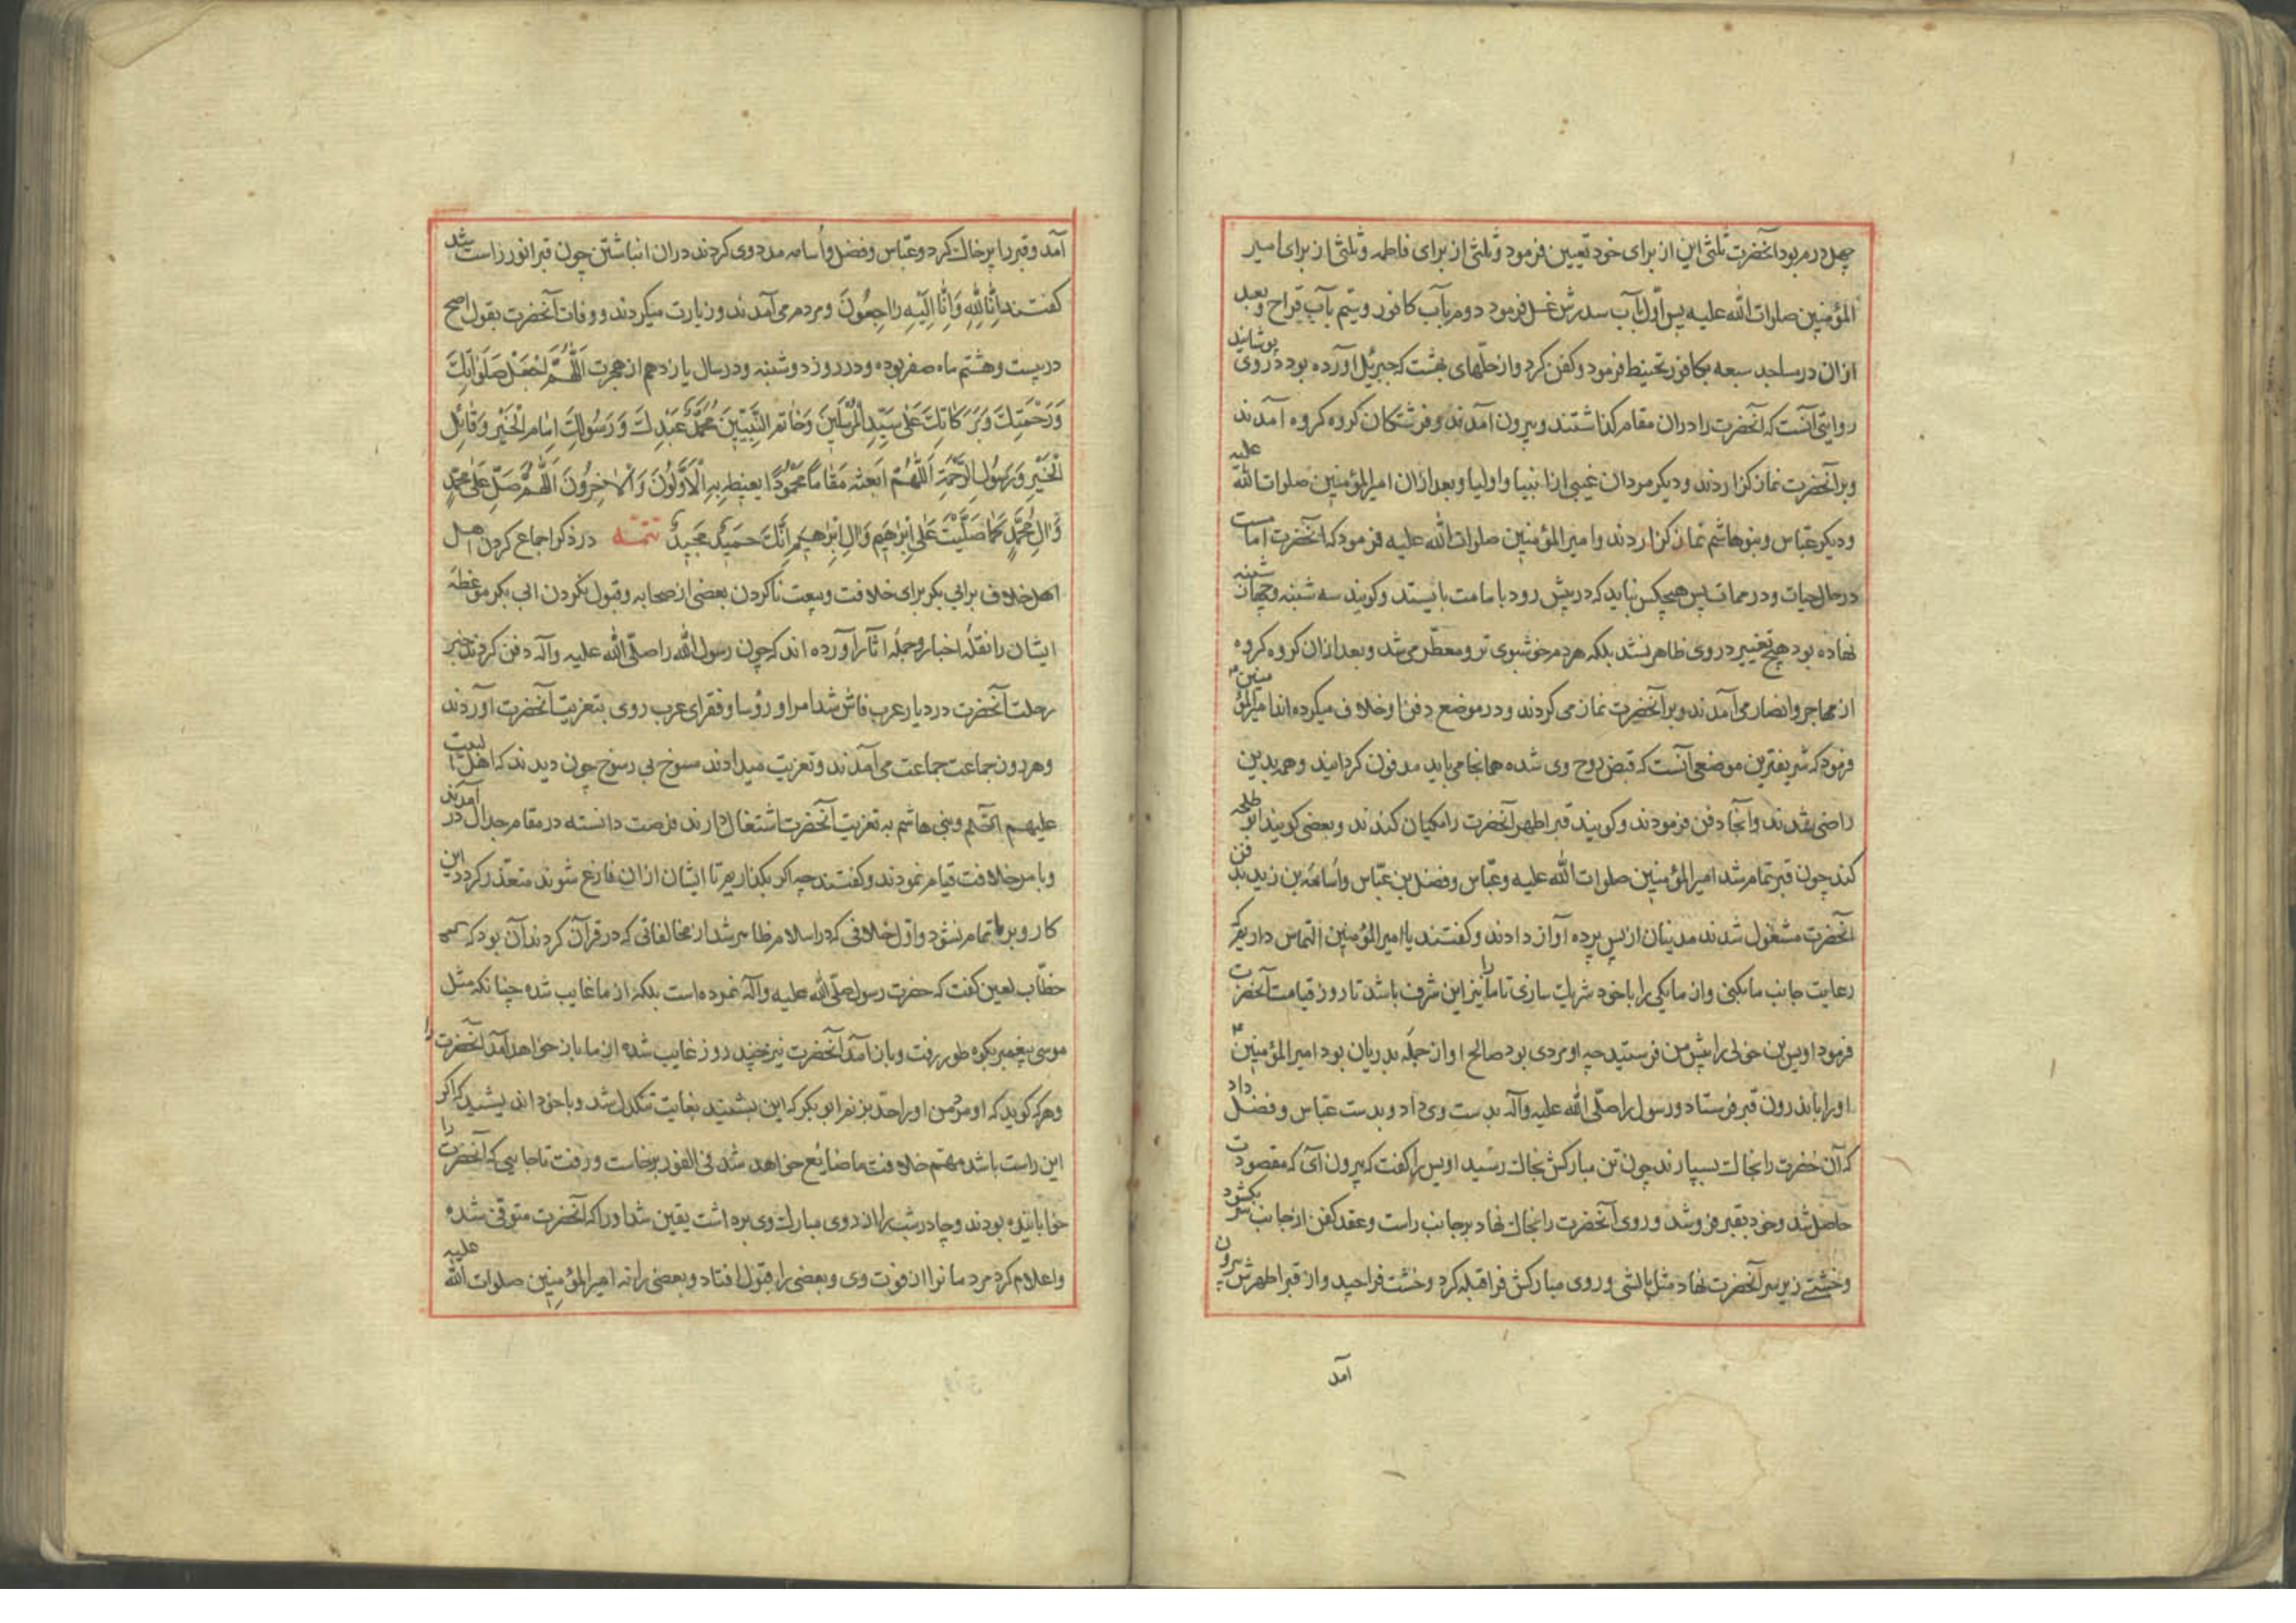 چهل درم بود آنحضرت ثلثی این از برای خود تعیین فرمود و ثلثی از برای فاطمه و ثلثی از برای امیر
المؤمنین صلوات الله علیه پس اوّل بآب سدرش غسل فرمود دوم بآب کافور و سیّم بآب قراح و بعد
ازان در مساجد سبعه بکافور تحنیط فرمود و کفن کرد و از حلّهای بهشت که جبرئیل آورده بود در وی پوشانید
روایتی آنست که آنحضرت را دران مقام کذاشتند و بیرون آمدند و فرشتکان کروه کروه آمدند
و برآنحضرت نماز کزاردند و دیکر مردان غیبی از انبیا و اولیا و بعد ازان امیرالمؤمنین صلوات الله علیه
و دیکر عبّاس و بنوهاشم نماز کزاردند و امیرالمؤمنین صلوات الله علیه فرمود که آنحضرت امامست
در حال حیات و در ممات پس هیچکس نباید که در پیش رود بامامت بایستد و کویند سه شنبه و چهارشنبه
نهاده بود هیچ تغییر در وی ظاهر نشد بلکه هردم خوشبوی تر و معطّر می شد و بعد ازان کروه کروه
از مهاجر و انصار می آمدند و برآنحضرت نماز می کردند و در موضع دفن او خلاف میکرده اند امیرالمؤمنین
فرمود که شریفترین موضعی آنست که قبض روح وی شده همانجا می باید مدفون کردانید و همه بدین
راضی شدند و آنجا دفن فرمودند و کویند قبر اطهر آنحضرت را مکیان کندند و بعضی کویند ابو طلحه
کند چون قبر تمام شد امیرالمؤمنین صلوات الله علیه و عبّاس و فضل بن عبّاس و اسامة بن زید بدفن
آنحضرت مشغول شدند مدنیان از پس پرده آواز دادند و کفتند یا امیرالمؤمنین التماس داریم که
رعایت جانب ما بکنی و از ما یکی را با خود شریک سازی تا ما را نیز این شرف باشد تا روز قیامت آنحضرت
فرمود اویس بن خولی را پیش من فرستید چه او مردی بود صالح و از جمله بدریان بود امیرالمؤمنین
او را باندرون قبر فرستاد و رسول را صلّی الله علیه وآله بدست وی داد و بدست عبّاس و فضل داد
که آن حضرت را بخاک بسپارند چون تن مبارکش بخاک رسید اویس را کفت که بیرون آی که مقصودت
حاصل شد و خود بقبر فرو شد و روی آنحضرت را بخاک نهاد برجانب راست و عقد کفن از جانب سر بکشود
و خشتی زیر سر آنحضرت نهاد مثل بالشی و روی مبارکش فرا قبله کرد و خشت فراچید و از قبر اطهرش بیرون
آمد
آمد و قبر را پرخاک کرد و عبّاس و فضل و اُسامه مدد وی کردند دران انباشتن چون قبر انور راست شد
کفتند اِنّٰا لِلّٰهِ وَاِنّٰا اِلَیْهِ رٰاجِعُونَ و مردم می آمدند و زیارت میکردند و وفات آنحضرت بقول اصح
در بیست و هشتم ماه صفر بوده و در روز دوشنبه و در سال یازدهم از هجرت اَللّٰهُمَّ اجْعَلْ صَلَوٰاتِکَ
وَرَحْمَتِکَ وَبَرَکٰاتِکَ عَلٰی سَیِّدِ الْمُرْسَلینَ وَخٰاتَمِ النَّبِیّینَ مُحَمَّدٍ عَبْدِکَ وَرَسُولِکَ اِمٰامِ الْخَیْرِ وَقٰائِلِ
الْخَیْرِ وَرَسُولِ الرَّحْمَةِ اَللّٰهُمَّ ابْعَثْهُ مَقٰامًا مَحْمُودًا یَغْبِطُ بِهِ الْاَوَّلُونَ وَالْاٰخِرُونَ اَللّٰهُمَّ صَلِّ عَلٰی مُحَمَّدٍ
وَاٰلِ مُحَمَّدٍ کَمٰا صَلَّیْتَ عَلٰی اِبْرٰهیمَ وَاٰلِ اِبْرٰهیمَ اِنَّکَ حَمیدٌ مَجیدٌ تتمّه در ذکر اجماع کردن اهل
اهل خلاف برابی بکر برای خلافت و بیعت ناکردن بعضی از صحابه و قبول نکردن ابی بکر موعظه
ایشان را نقلهٔ اخبار و جملهٔ اثآر آورده اند که چون رسول الله را صلّی الله علیه وآله دفن کردند خبر
رحلت آنحضرت در دیار عرب فاش شد امرا و رؤسا و فقرای عرب روی بتعزیت آنحضرت آوردند
و هر دون جماعت جماعت می آمدند و تعزیت میدادند چون دیدند که اهل البیت
علیهم التحیّه و بنی هاشم به تعزیت آنحضرت اشتغال دارند فرصت دانسته در مقام جدال در آمدند
و بامر خلافت قیام نمودند و کفتند چه اکر بکذاریم تا ایشان ازان فارغ شوند متعذّر کردد این
کار و بر ما تمام نشود و اوّل خلافی که در اسلام ظاهر شد از مخالفاتی که در قرآن کردند آن بود که
خطّاب لعین کفت که حضرت رسول صلّی الله علیه وآله نمرده است بلکه از ما غایب شده چنانکه مثل
موسی پیغمبر بکوه طور رفت و باز آمد آنحضرت نیز چند روز غایب شده از ما باز خواهد آمد آنحضرت را
و هرکه کوید که او مرد من او را حدّ بزنم ابوبکر که این بشنید بغایت تنکدل شد و با خود اندیشید که اکر
این راست باشد مهمّ خلافت ما ضایع خواهد شد فی الفور برخاست و رفت تا جایی که آنحضرت را
خوابانیده بودند و چادر شب را از روی مبارک وی برداشت یقین شد او را که آنحضرت متوفّی شده
و اعلام کرد مردمانرا از فوت وی و بعضی را قبول افتاد و بعضی را نه امیرالمؤمنین صلوات الله علیه